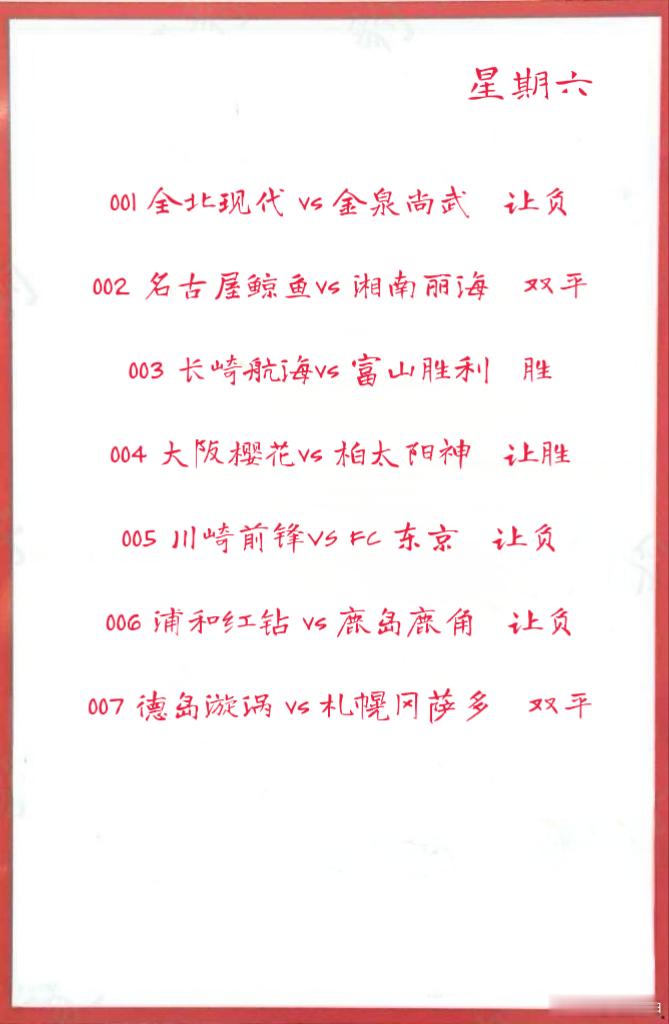 星期六
001 全北现代 vs 金泉尚武 让负
002 名古屋鲸鱼vs 湘南丽海 双平
003 长崎航海vs 富山胜利 胜
004 大阪樱花vs 柏太阳神 让胜
005 川崎前锋VS FC 东京 让负
006 浦和红钻 vs 鹿岛鹿角 让负
007 德岛漩涡 vs 札幌冈萨多 双平